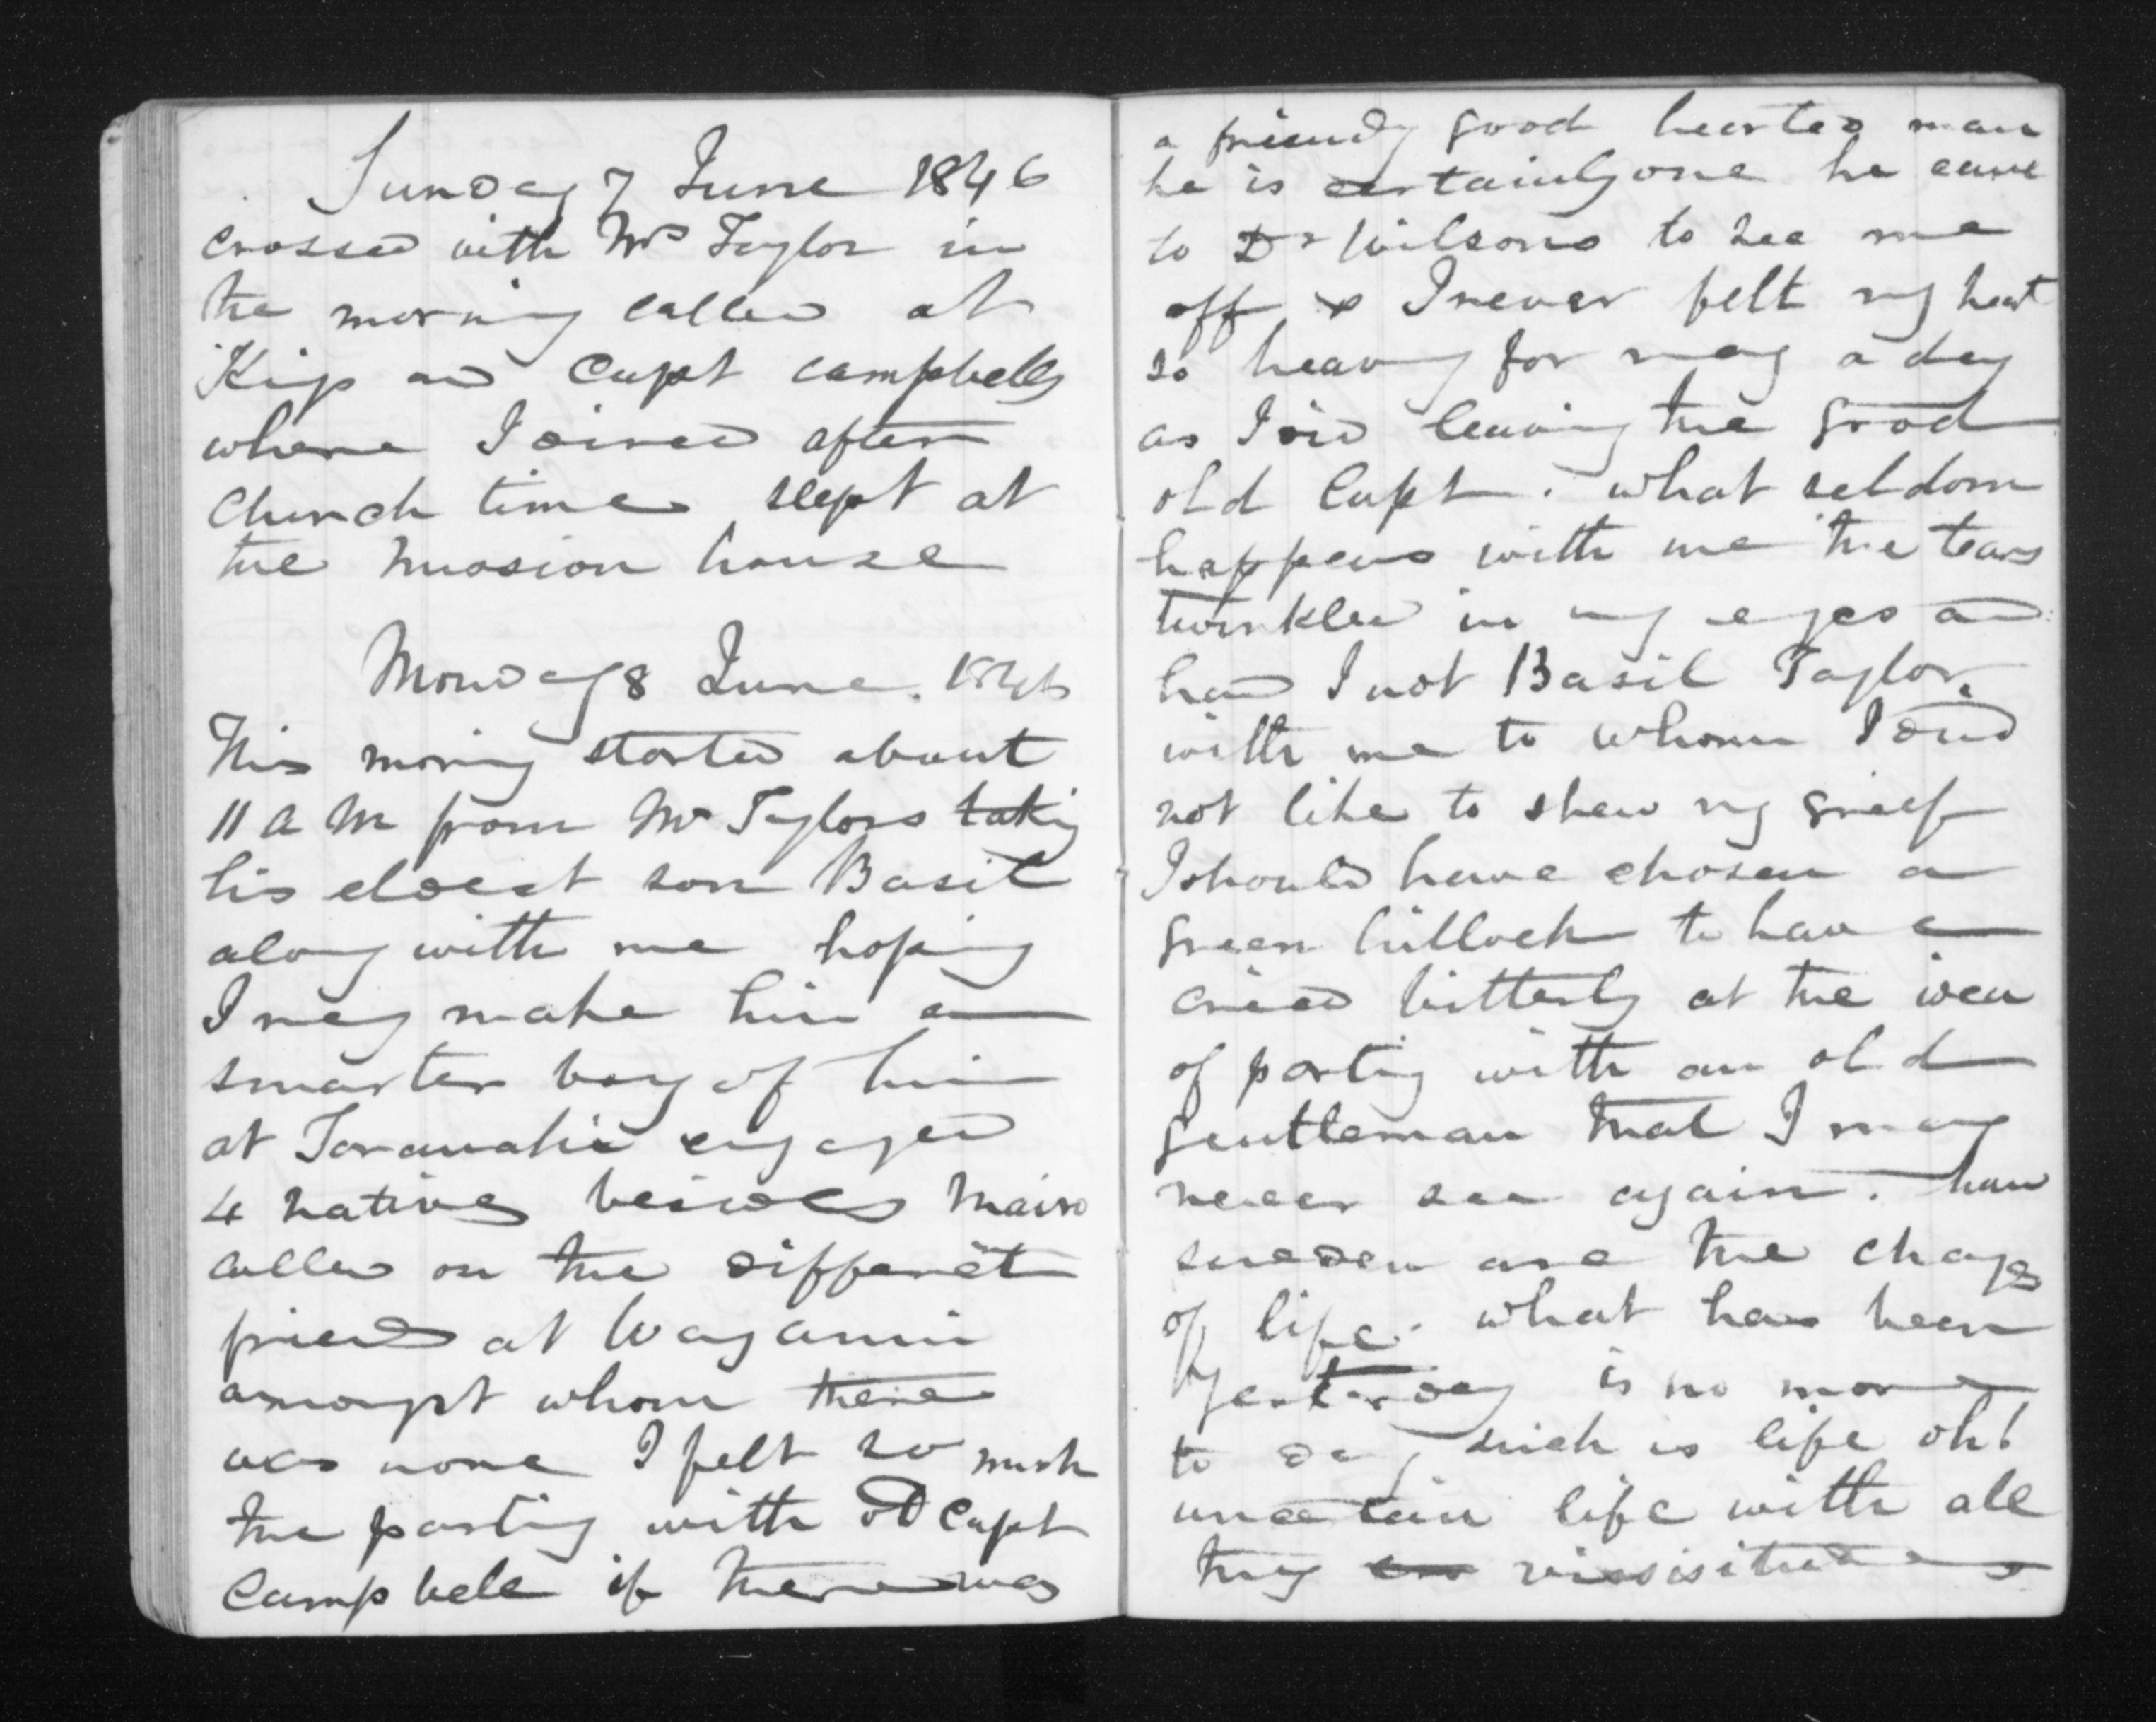 Sunday 7 June 1846
crossed with Mr Taylor in
the morning called at
King and Capt campbells
where I dined after
Church time slept at
the Mission house
Monday 8 June. 1846
This moring started about
11 A M from Mr Taylors taking
his eldest son Basil
along with me hoping
I may make him a
smarter boy of him
at Taranaki engaged
4 natives besides
called on the different
friends at Wanganui
amongst whom there
was none I felt so much
the parting with old Capt
Campbell if there was
a friendy good hearted man
he is certainly one he came
to Dr Wilsons to see me
off & I never felt my heart
so heavy for many a day
as I did leaving the good
old Capt. what seldom
happens with me the tears
twinkled in my eyes and
had I not Basil Taylor
with me to whom I did
not like to shew my greef
I should have chosen a
green hillock to have
cried bitterly at the idea
of parting with an old
gentleman that I may
never see again. how
sudden are the changes
of life. what has been
Yesterday is no more
to day, such is life oh!
uncertain life with all
thy vissisitudes